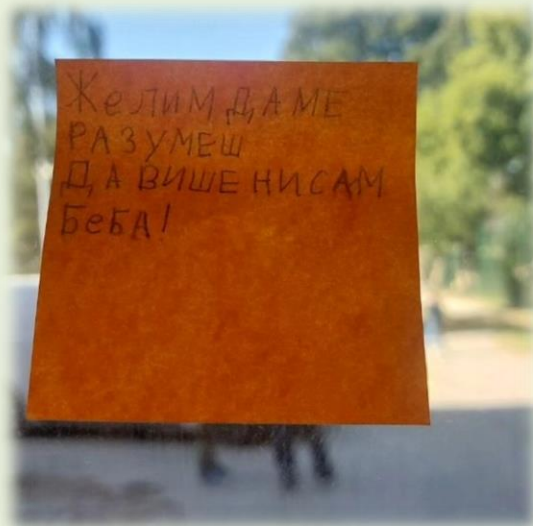 Желим ДА МЕ
РАЗУМЕШ
ДА ВИШЕ НИСАМ
БеБА!